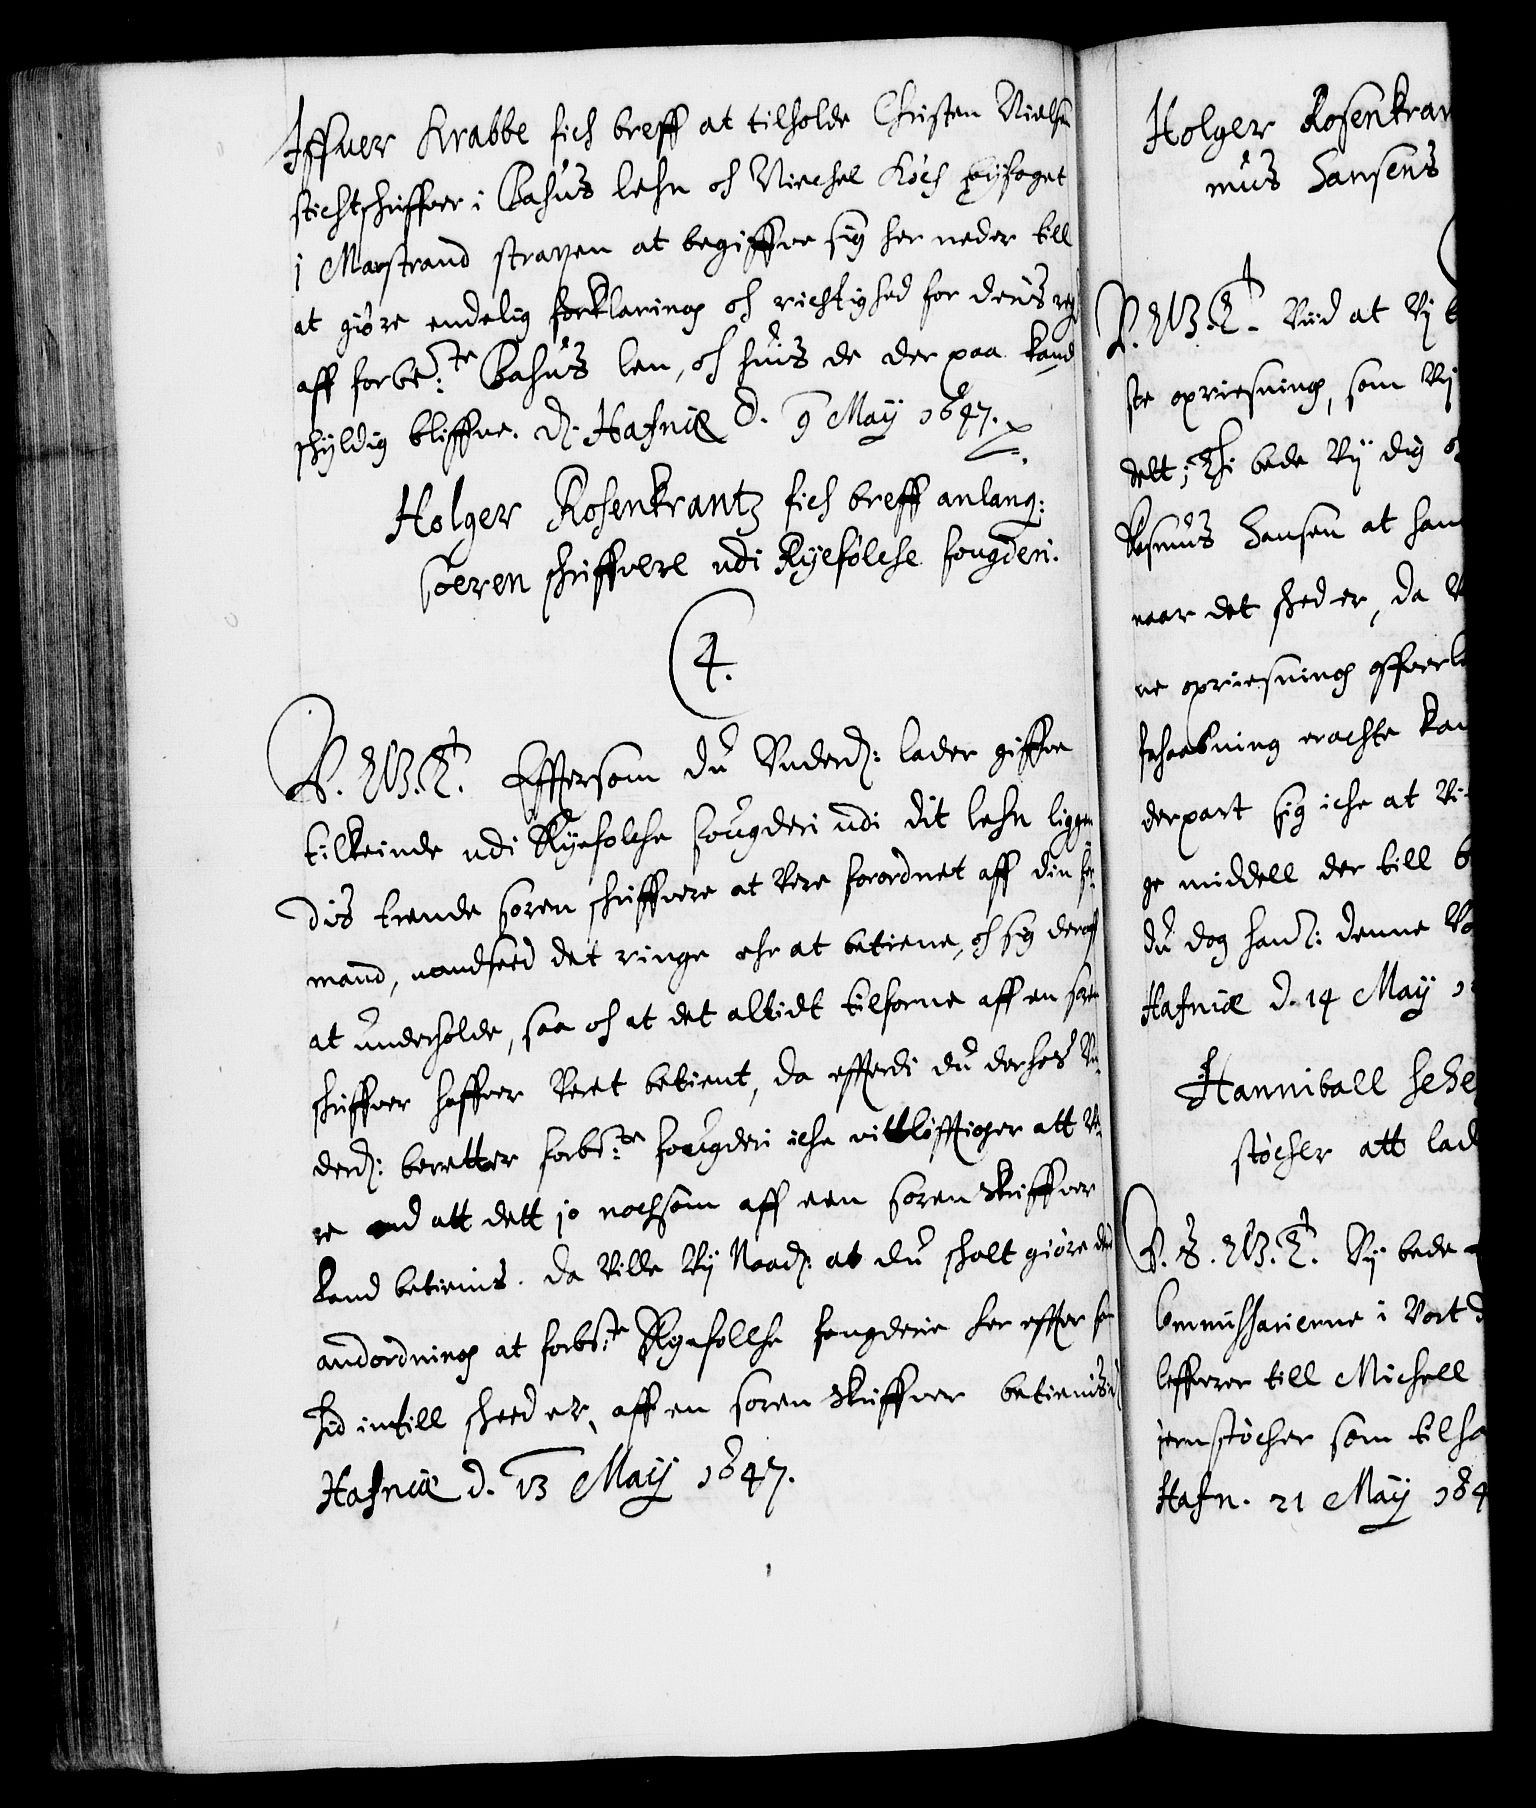 Iffuer Krabbe fich breff at tilholde Christen Nielsen
stichtschriffuer i Bahus lehn och Niechel Koch byfoget
i Marstrand straxen at begiffue sig her neder till
at giöre endelig forklaring och richtighed for deris reg
aff forbe:te Bahus len, och huis de der paa kand
schyldig bliffue. d. Hafniæ d. 9 May 1647.
Holger Rosenkrantz fich breff anlang:
soeren schriffuere udi Ryefölche fougderi.
4.
V. G. T. Efftersom du Underd: lader giffue
tilkiende udi Ryefolche fougderi udi dit lehn liggen
dis trende soren schriffuere at vere forordnet aff din for
mand, uandseed det ringe ehr at betiene, och sig deraff
at underholde, saa och at det altidt tilforne aff en soren
schriffuer haffuer veret betient, da effterdi du derhos Un
derd: beretter forbe:te fougderi iche vitlöfftiger att ve
re end att dett jo nochsom aff een soren skriffuer
kand betienis. da ville Vy Naad: at du schalt giöre den
andordning at forbe:te Ryefollche fougderie her effter som
hid intill scheed er, aff en soren skriffuer betienis
Hafniæ d. 13 Maij 1647.
Holger Rosenkran
mus Hansens
V. G. T. Viid at Vy
ste opriesning, som Vy
delt; Thi bede Vy dig
Rasmus Hansen at han
naar det sched er, da
ne opriesning offuer
erachte kan
derpart sig iche at
ge middell der till
du dog han: denne
Hafniæ d. 14 May
Hanniball sehe
stöcher att lad
V. S. G. T. Vy bede
Commissarierne i Vort
leffuerer till Michell
jernstöcher som tilho
Hafn. 21 May 164